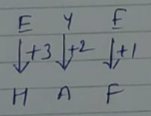 E Y E
↓+3 ↓+2 ↓+1
H A F